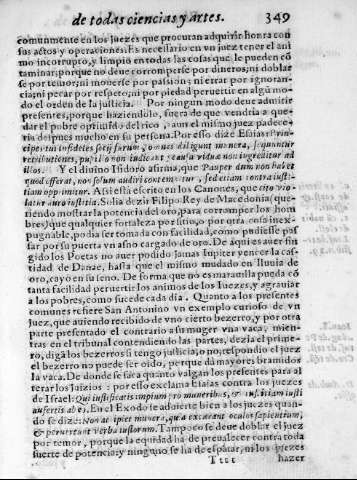 de todas ciencias y artes. 349
comunmente en los juezes que procuran adquirir honra con
sus actos y operaciones. Es necessario en vn juez tener el ani
mo incorrupto, y limpio en todas las cosas que le pueden cõ
taminar, porque no deue corromperse por dineros; ni doblar
se por temor; ni mouerse por passion; ni errar por ignoran-
cia; ni pecar por respeto; ni por piedad peruertir en algũ mo-
do el orden de la justicia. Por ningun modo deue admitir
presentes, porque haziendolo, fuera de que vendria a que-
dar el pobre oprimido del rico, aun el mismo juez padece-
ria despues mucho en su persona. Por esso dize Esaias: Prin
cipes tui infideles socij furum, omnes diligunt munera, sequuntur
retributiones, pupillo non iudicant & causa viduæ non ingreditur ad
illos. Y el diuino Isidoro afirma, que Pauper dum non habet
quod offerat, non solum audiri contemnitur, sed etiam contra iusti-
tiam opprimitur. Assi está escrito en los Canones, que cito vio-
latur auro iustitia. Solia dezir Filipo Rey de Macedonia (que
riendo mostrar la potencia del oro, para corromper los hom
bres) que qualquier fortaleza por sitio, o por otra cosa inex-
pugnable, podia ser tomada con facilidad, como pudiesse pas
sar por su puerta vn asno cargado de oro. De aqui es auer fin
gido los Poetas no auer podido jamas Iupiter vencer la cas-
tidad de Danae, hasta que el mismo mudado en lluuia de
oro, cayo en su seno. De forma que no es marauilla pueda cõ
tanta facilidad peruertir los animos de los Iuezes, y agrauiar
a los pobres, como sucede cada dia. Quanto a los presentes
comunes refiere San Antonino vn exemplo curioso de vn
Iuez, que auiendo recibido de vno cierto bezerro, y por otra
parte presentado el contrario a su muger vna vaca, mien-
tras en el tribunal contendien do las partes, dezia el prime-
ro, digã los bezerros si tengo justicia, o no, respondio el juez
el bezerro no puede ser oido, porque dà mayores bramidos
la vaca. De donde se saca quanto valgan los presentes para al
terar los Iuizios: por esso exclama Esaias contra los juezes
de Israel: Qui iustificatis impium pro muneribus, & iustitiam iusti
aufertis ab eo. En el Exodo se aduierte bien a los juezes quan
do se dize: Non accipies munera, quæ excæcant oculos sapientium,
& peruertunt verba iustorum. Tampoco se deue doblar el juez
por temor, porque la equidad ha de preualecer contra toda
suerte de potencia; y ninguno se ha de espantar, ni los juezes
Tttt hazer